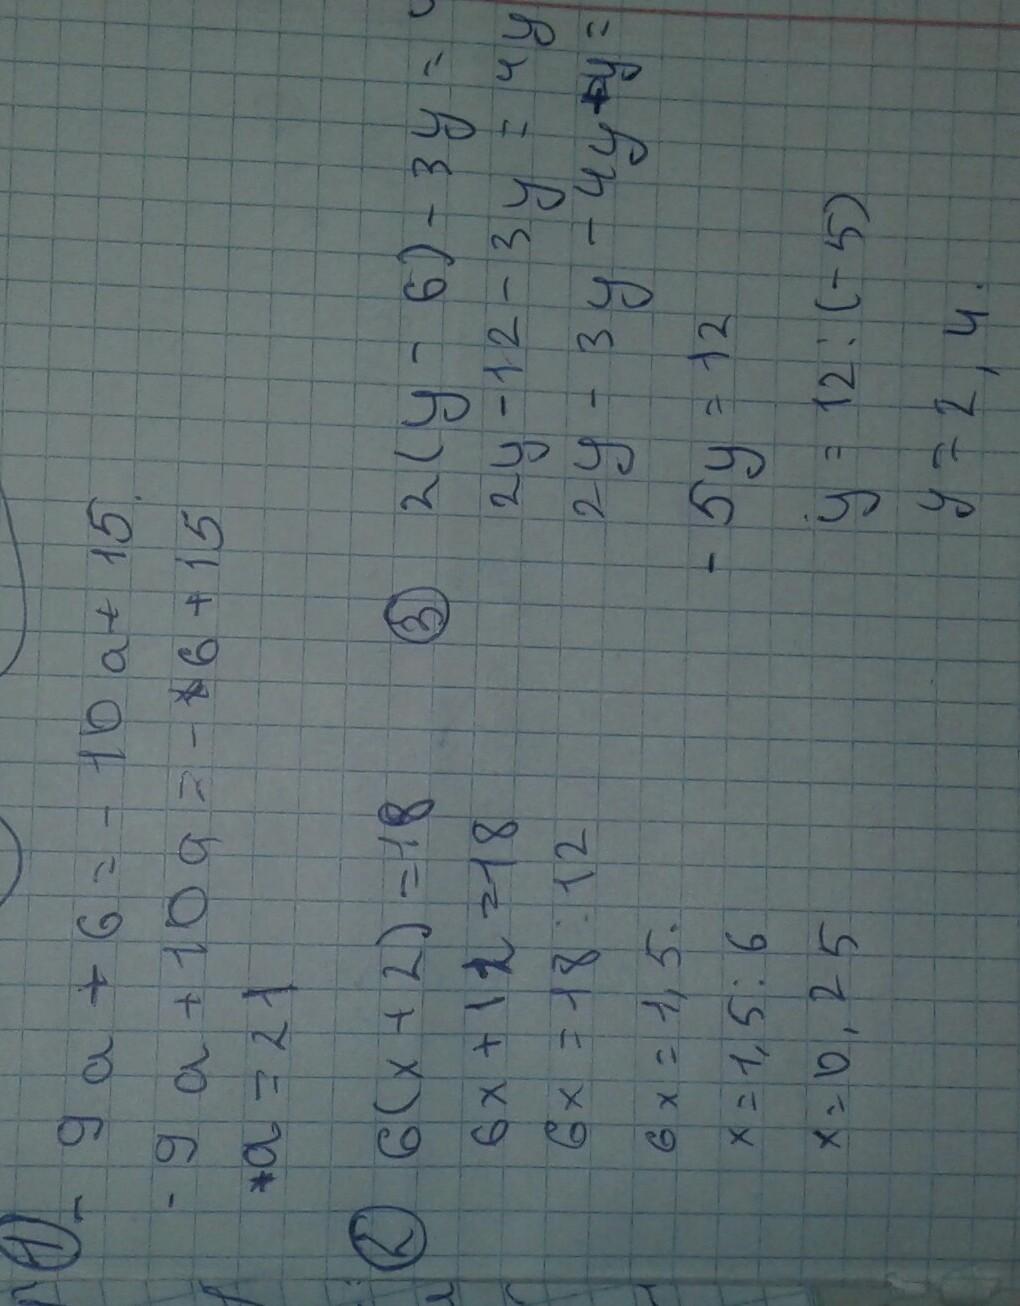 ①
- 9a + 6 = - 10a + 15.
- 9a + 10a = - 6 + 15
a = 21
②
6(x + 2) = 18
6x + 12 = 18
6x = 18 : 12
6x = 1,5.
x = 1,5 : 6
x = 0,25
③
2(y - 6) - 3y =
2y - 12 - 3y = 4y
2y - 3y - 4y =
- 5y = 12
y = 12 : (- 5)
y = 2,4.